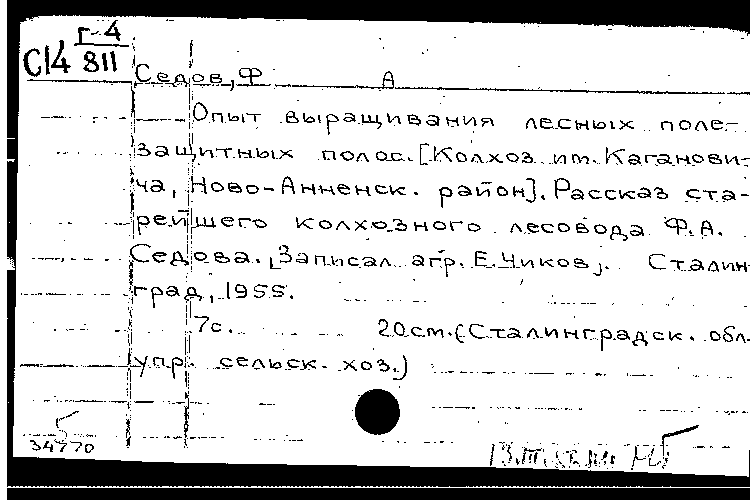 Г-4
С14 811
Седов, Ф А
Опыт выращивания лесных поле-
защитных полос. [Колхоз им. Каганови-
ча, Ново-Анненск. район]. Рассказ ста-
рейшего колхозного лесовода Ф.А.
Седова. [Записал агр. Е. Чиков]. Сталин
град, 1955.
7с. 20см. (Сталинградск. обл.
упр. сельск. хоз.)
5
34770